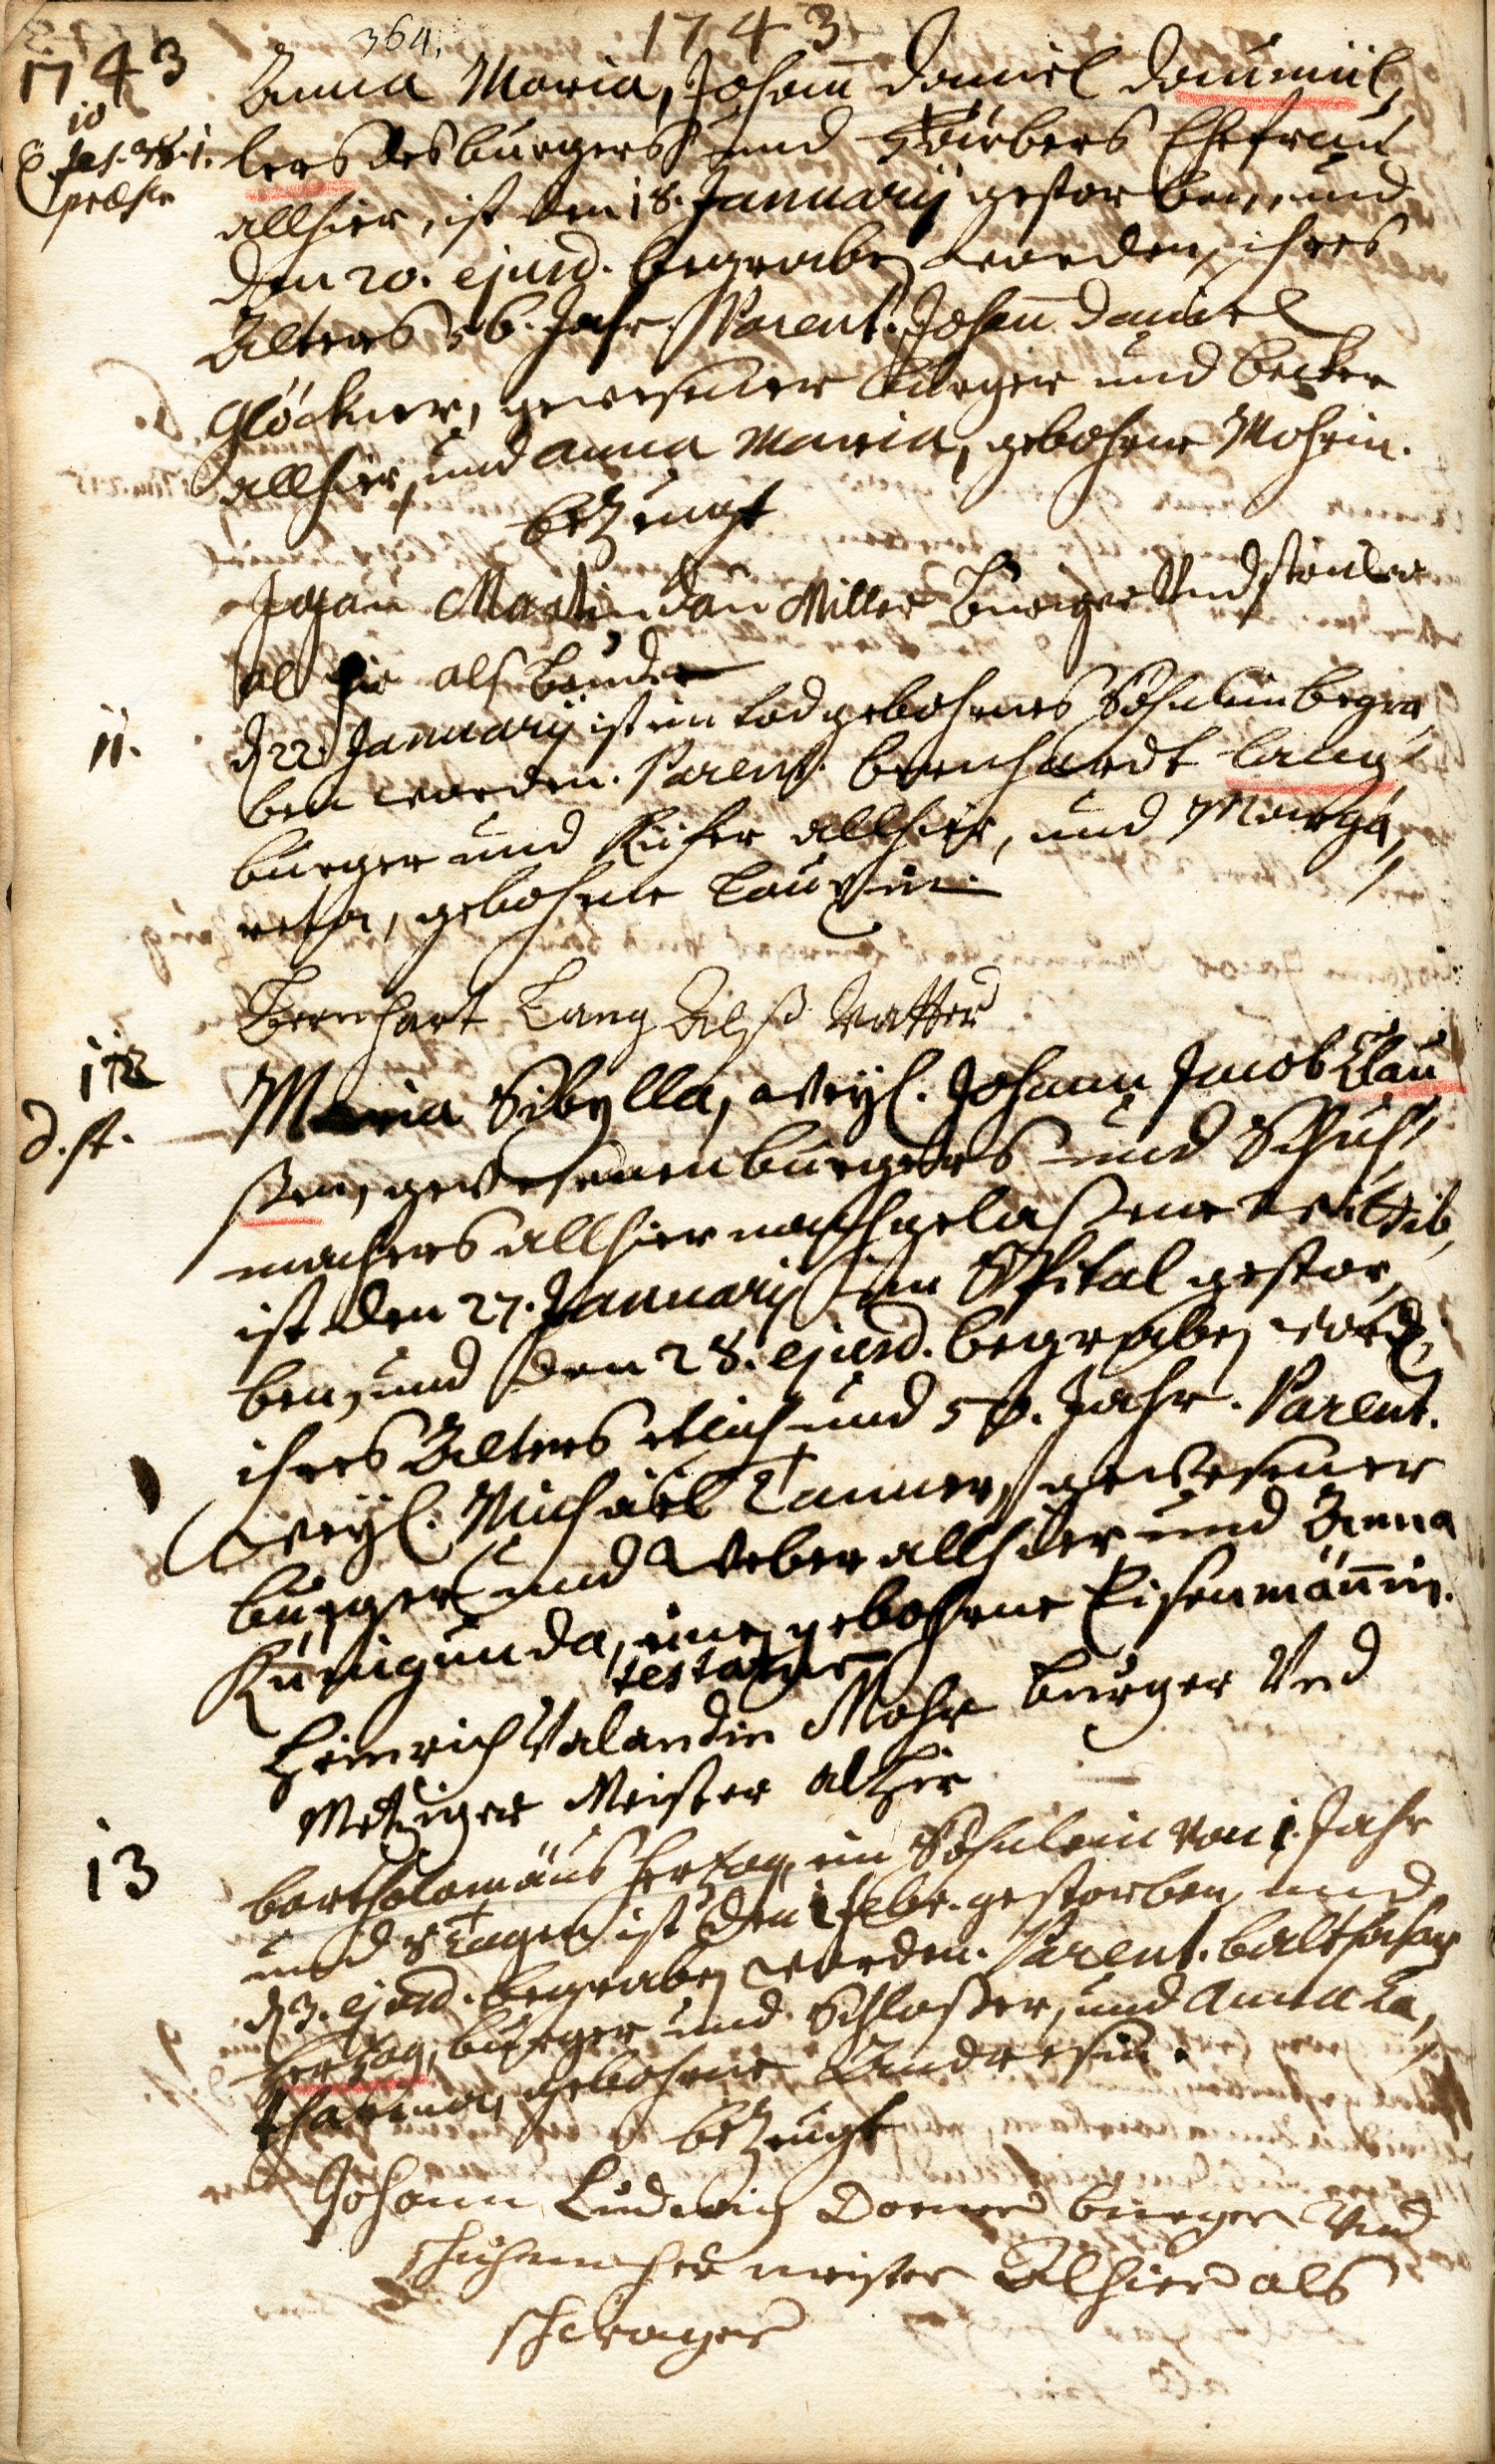 364.
1743
1743
10
Jes. 38. 1.
Anna Maria, Johañ Daniel Daumül,
lers des burgers und Färbers Ehefrau
allhier, ist den 18. Januarij gestorben, und
den 20. ejusd. begraben worden, ihres
Alters 56. Jahr. Parent. Johañ Daniel
Glöckner, gewesener burger und becker
allhier, und Anna Maria, gebohrne Mohrin.
bezeugt
Johan Martin Dau Miller Burger Und
al hie als Bruder
11.
d 22. Januarij ist ein todgebohrnes Söhnlein begra,
ben worden. Parent. Bernhardt Lang
burger und Küfer allhier, und Marga,
retha, gebohrne
Bernhart Lang Alß Vatter
12
d. st.
Maria Sibylla, weyl. Johann Jacob Clau
ßen, gewesenen burgers und Schuh
machers allhier nachgelaßene Wittib,
ist den 27. Januarij im Spital gestor,
ben, und den 28. ejusd. begraben word.
ihres Alters etlich und 50. Jahr. Parent.
weyl. Michael Tanner, gewesener
burger und Weber allhier und Anna
Kunigunda, eine gebohrne Eisenmäñin.
testatur
Heinrich Valandin Mohr Burger Und
Metziger Meister alhir
13
Bartholomäus Hertzog, ein Söhnlein von 1. Jahr
und 8 Tagen ist den 1 Febr. gestorben, und
d 3. ejusd. begraben worden. Parent. Balthasar
Hertzog, burger und Schloßer, und Anna Ca,
tharina, gebohrne Andresin.
bezeugt
Johann Ludwig Dorner burger Und
schuhmacher meister Alhier als
schwager